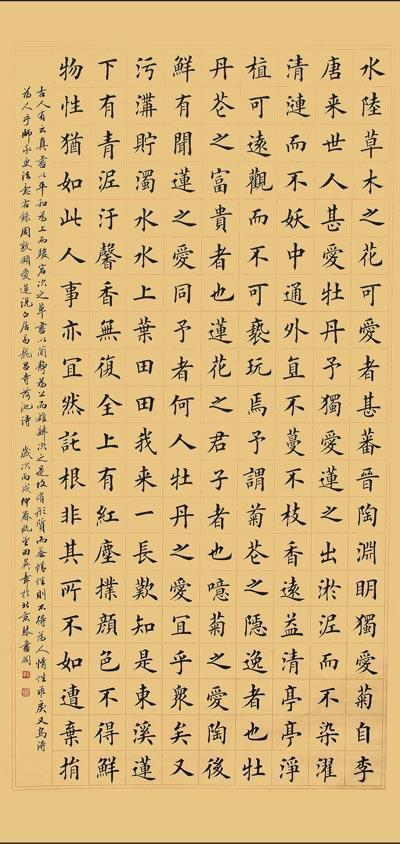 水陸草木之花可愛者甚蕃晉陶淵明獨愛菊自李
唐来世人甚愛牡丹予獨愛蓮之出淤泥而不染濯
清漣而不妖中通外直不蔓不枝香遠益清亭亭淨
植可遠觀而不可褻玩焉予謂菊花之隱逸者也牡
丹花之富貴者也蓮花之君子者也噫菊之愛陶後
鮮有聞蓮之愛同予者何人牡丹之愛宜乎衆矣又
污溝貯濁水水上葉田田我来一長歎知是東溪蓮
下有青泥汙馨香無復全上有紅塵撲顏色不得鮮
物性猶如此人事亦宜然託根非其所不如遭棄捐
古人有云真書以平和為上而駿宕次之草書以簡靜為上而雄肆次之是故有形質而無情性則不得為人情性乖戾又烏得
為人乎右錄周敦頤愛蓮說白居易龍昌寺荷池詩 歲次丙戌仲春田英章於北京